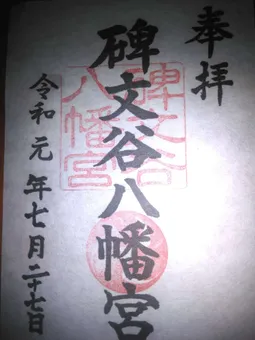 奉拝
碑文谷八幡宮
碑文谷
八幡宮
令和元年七月二十七日